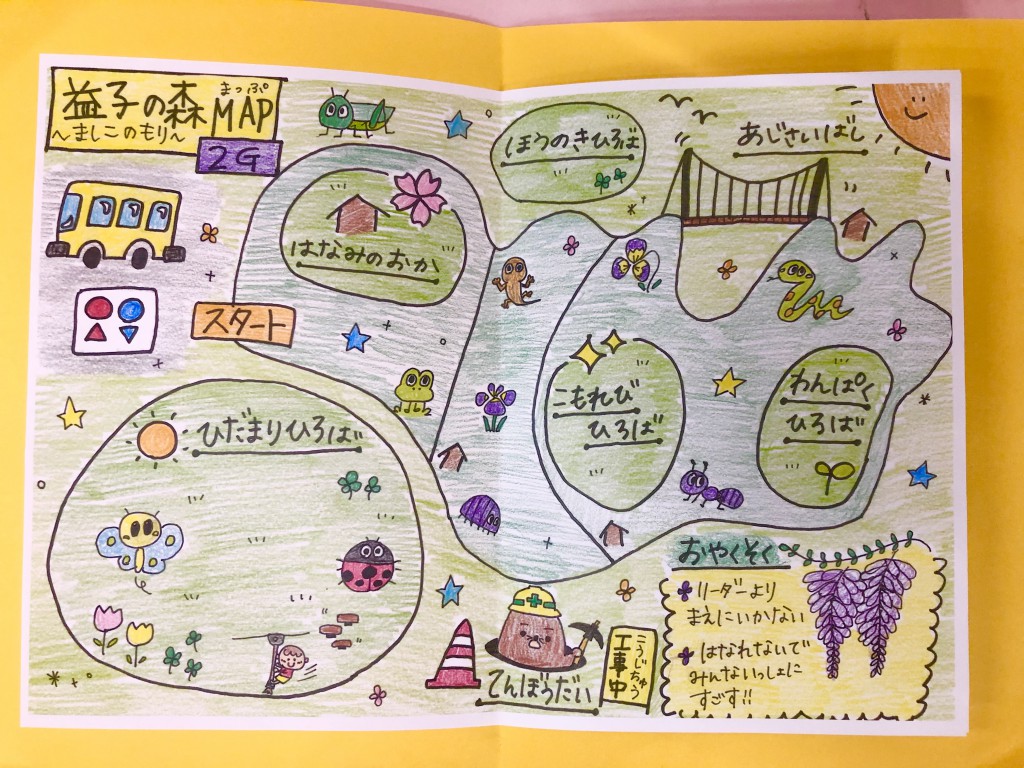 益子の森
まっぷ
MAP
～ましこのもり～
2G
ほうのきひろば
あじさいばし
はなみのおか
スタート
こもれび
ひろば
わんぱく
ひろば
ひだまりひろば
おやくそく
リーダーより
まえにいかない
はなれないで
みんないっしょに
すごす!!
てんぼうだい
こうじちゅう
工事中